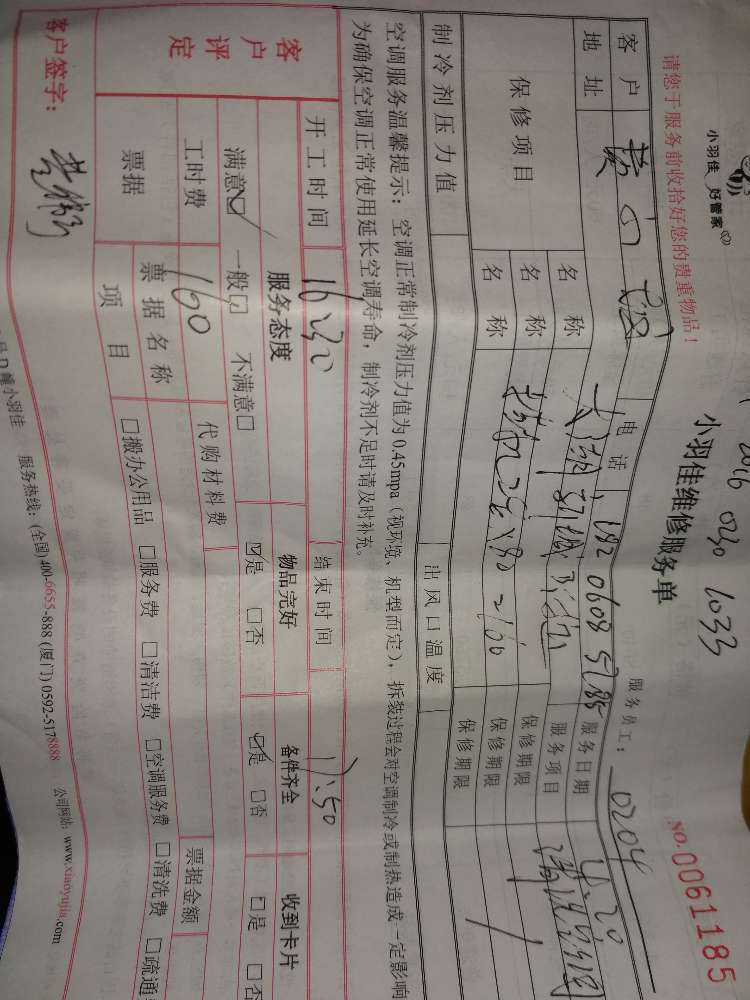 小羽佳 好管家
请您于服务前收拾好您的贵重物品!
1033
小羽佳维修服务单
服务员工: 0204
NO.0061185
客户
电话
服务日期
地址
服务项目
保修项目
名称
保修期限
名称
保修期限
名称
保修期限
制冷剂压力值
出风口温度
空调服务温馨提示: 空调正常制冷剂压力值为0.45mpa(视环境、机型而定), 拆装过程会对空调制冷或制热造成一定影响
为确保空调正常使用延长空调寿命, 制冷剂不足时请及时补充。
开工时间
结束时间 17:50
客户评定
服务态度
物品完好
备件齐全
收到卡片
满意☑ 一般☐ 不满意☐
☑是 ☐否
☑是 ☐否
☐是 ☐否
工时费 160
代购材料费
票据
票据名称
票据金额
项目
☐搬办公用品 ☐服务费 ☐清洁费 ☐空调服务费 ☐清洗费 ☐疏通
客户签字:
小羽佳 服务热线: (全国)400-6655-888 (厦门)0592-5178888 公司网站: www.xiaoyujia.com